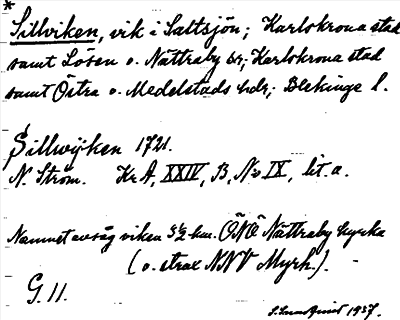 *
Sillviken, vik i Saltsjön; Karlskrona stad
samt Lösen o. Nättraby sr; Karlskrona stad
samt Östra o. Medelstads hdr; Blekinge l.
Sillwijken 1721.
N. Ström. Kr A, XXIV, B, No IX, lit. a.
Namnet avsåg viken 5½ km. ÖNÖ Nättraby kyrka
(o. strax NNV Myrh.).
G. 11.
1937.